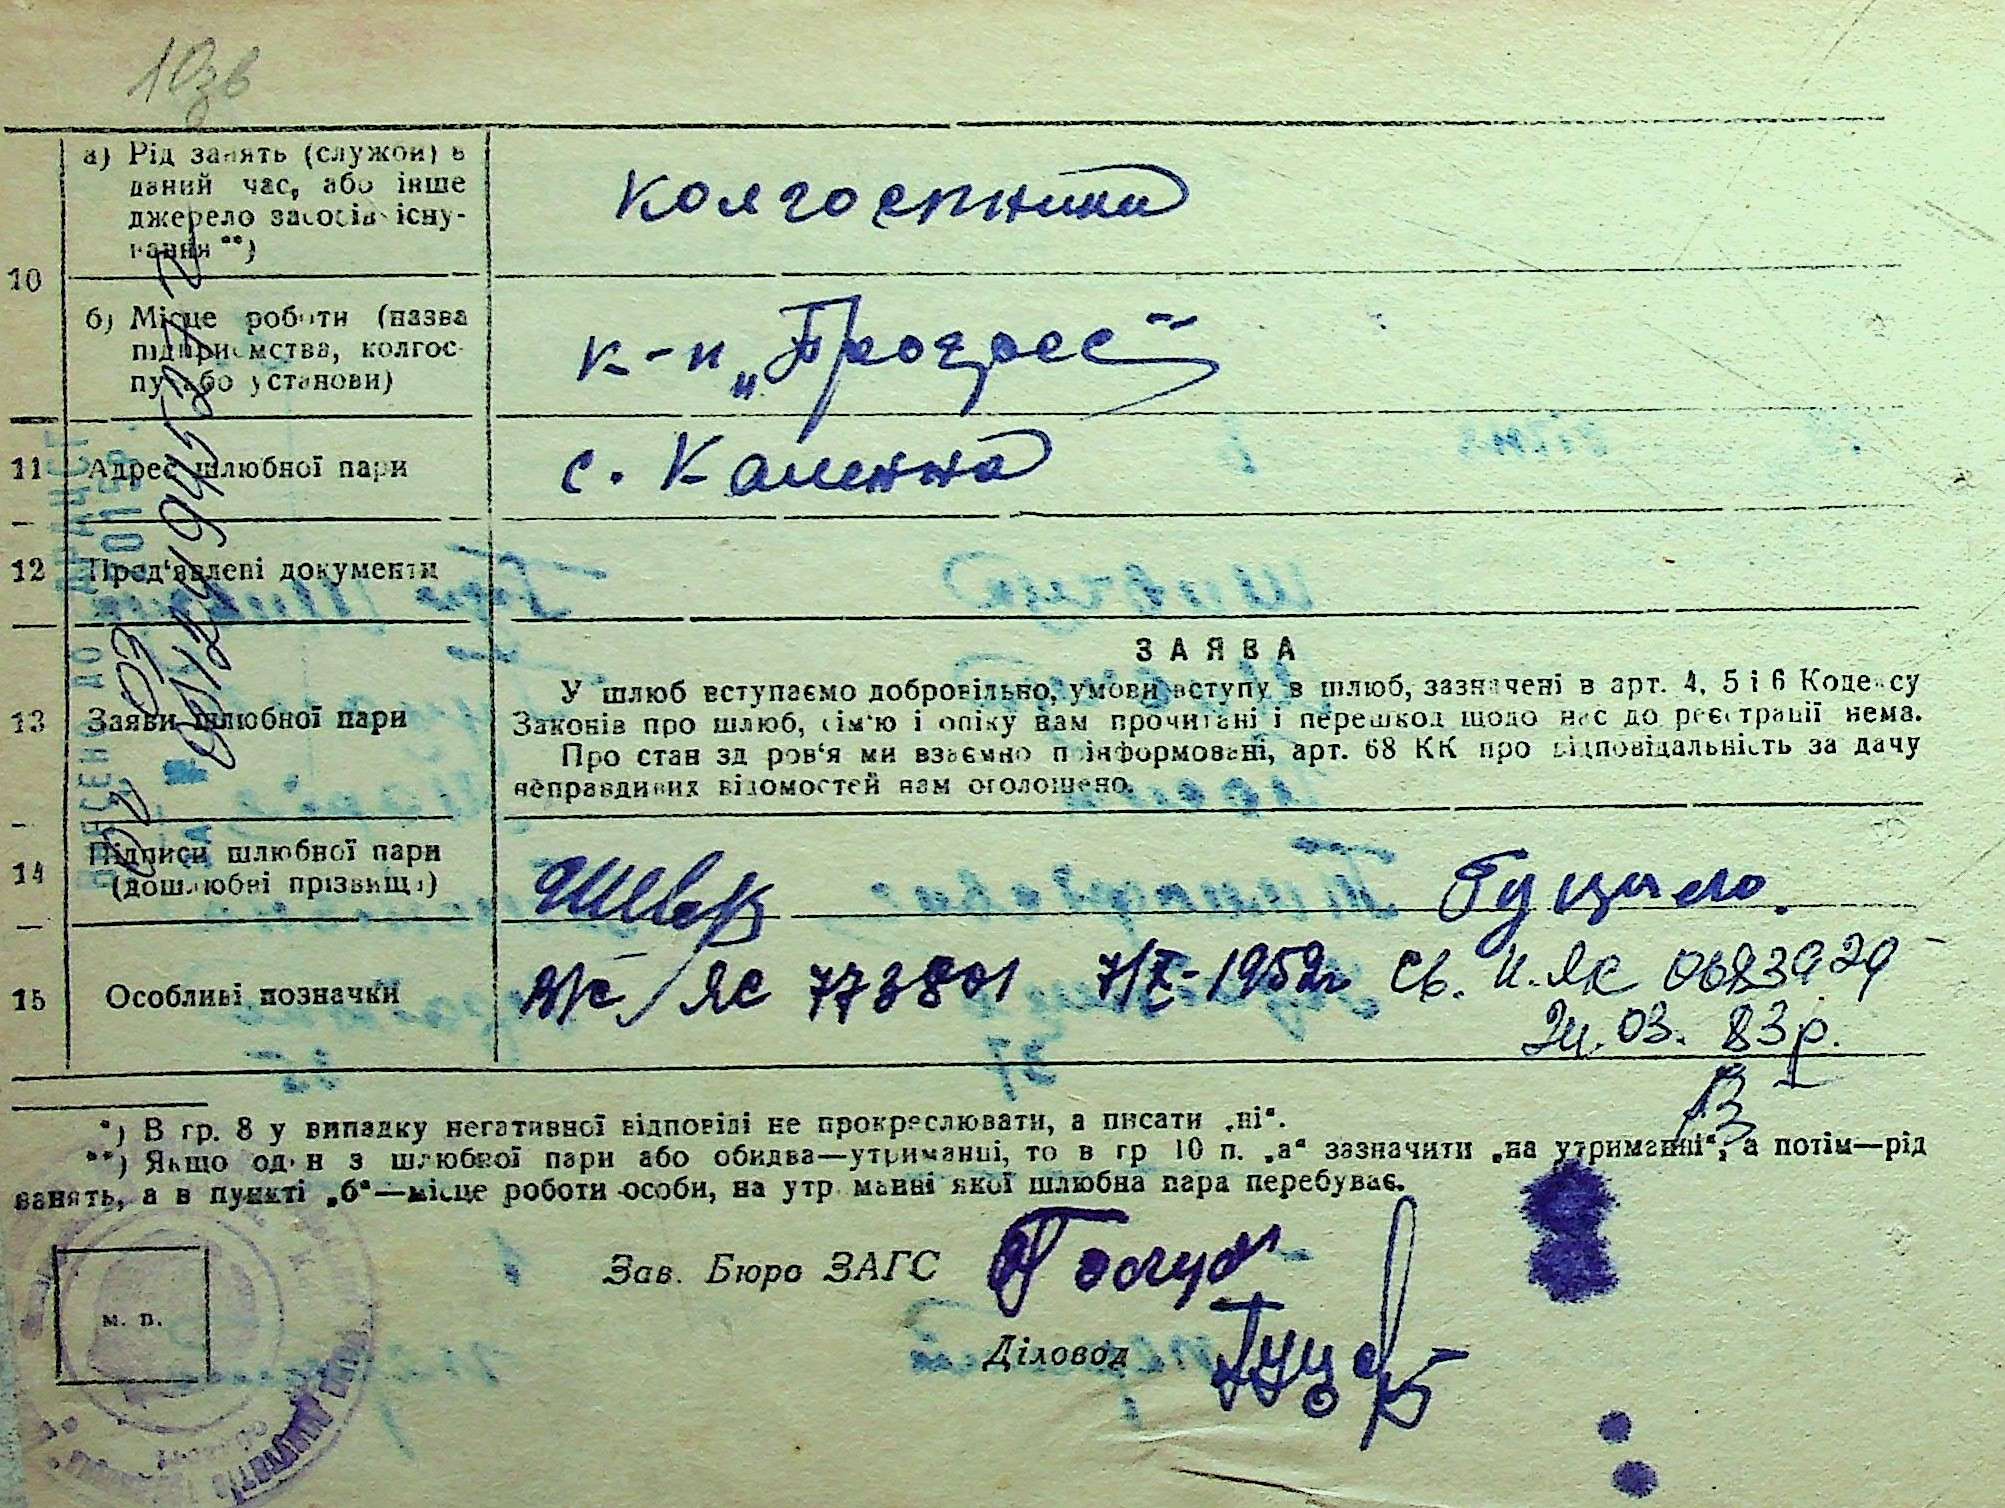 10зв
10
а) Рід занять (служби) в
даний час, або інше
джерело засобів існу-
вання **)
колгоспники
б) Місце роботи (назва
підприємства, колгос-
пу або установи)
к-п „Прогрес"
11
Адрес шлюбної пари
с. Каменна
12
Пред'явлені документи
13
Заяви шлюбної пари
ЗАЯВА
У шлюб вступаємо добровільно, умови вступу в шлюб, зазначені в арт. 4, 5 і 6 Кодексу
Законів про шлюб, сім'ю і опіку нам прочитані і перешкод щодо нас до реєстрації нема.
Про стан здоров'я ми взаємно поінформовані, арт. 68 КК про відповідальність за дачу
неправдивих відомостей нам оголошено.
14
Підписи шлюбної пари
(дошлюбні прізвища)
15
Особливі позначки
ЯС 773801 7/X-1952г Св. П. ЯК 0683929
24.03. 83р.
*) В гр. 8 у випадку негативної відповіді не прокреслювати, а писати „ні“.
**) Якщо один з шлюбної пари або обидва—утриманці, то в гр 10 п. „а“ зазначити „на утриманні“, а потім—рід
занять, а в пункті „б“—місце роботи особи, на утриманні якої шлюбна пара перебуває.
Зав. Бюро ЗАГС
Діловод
м. п.